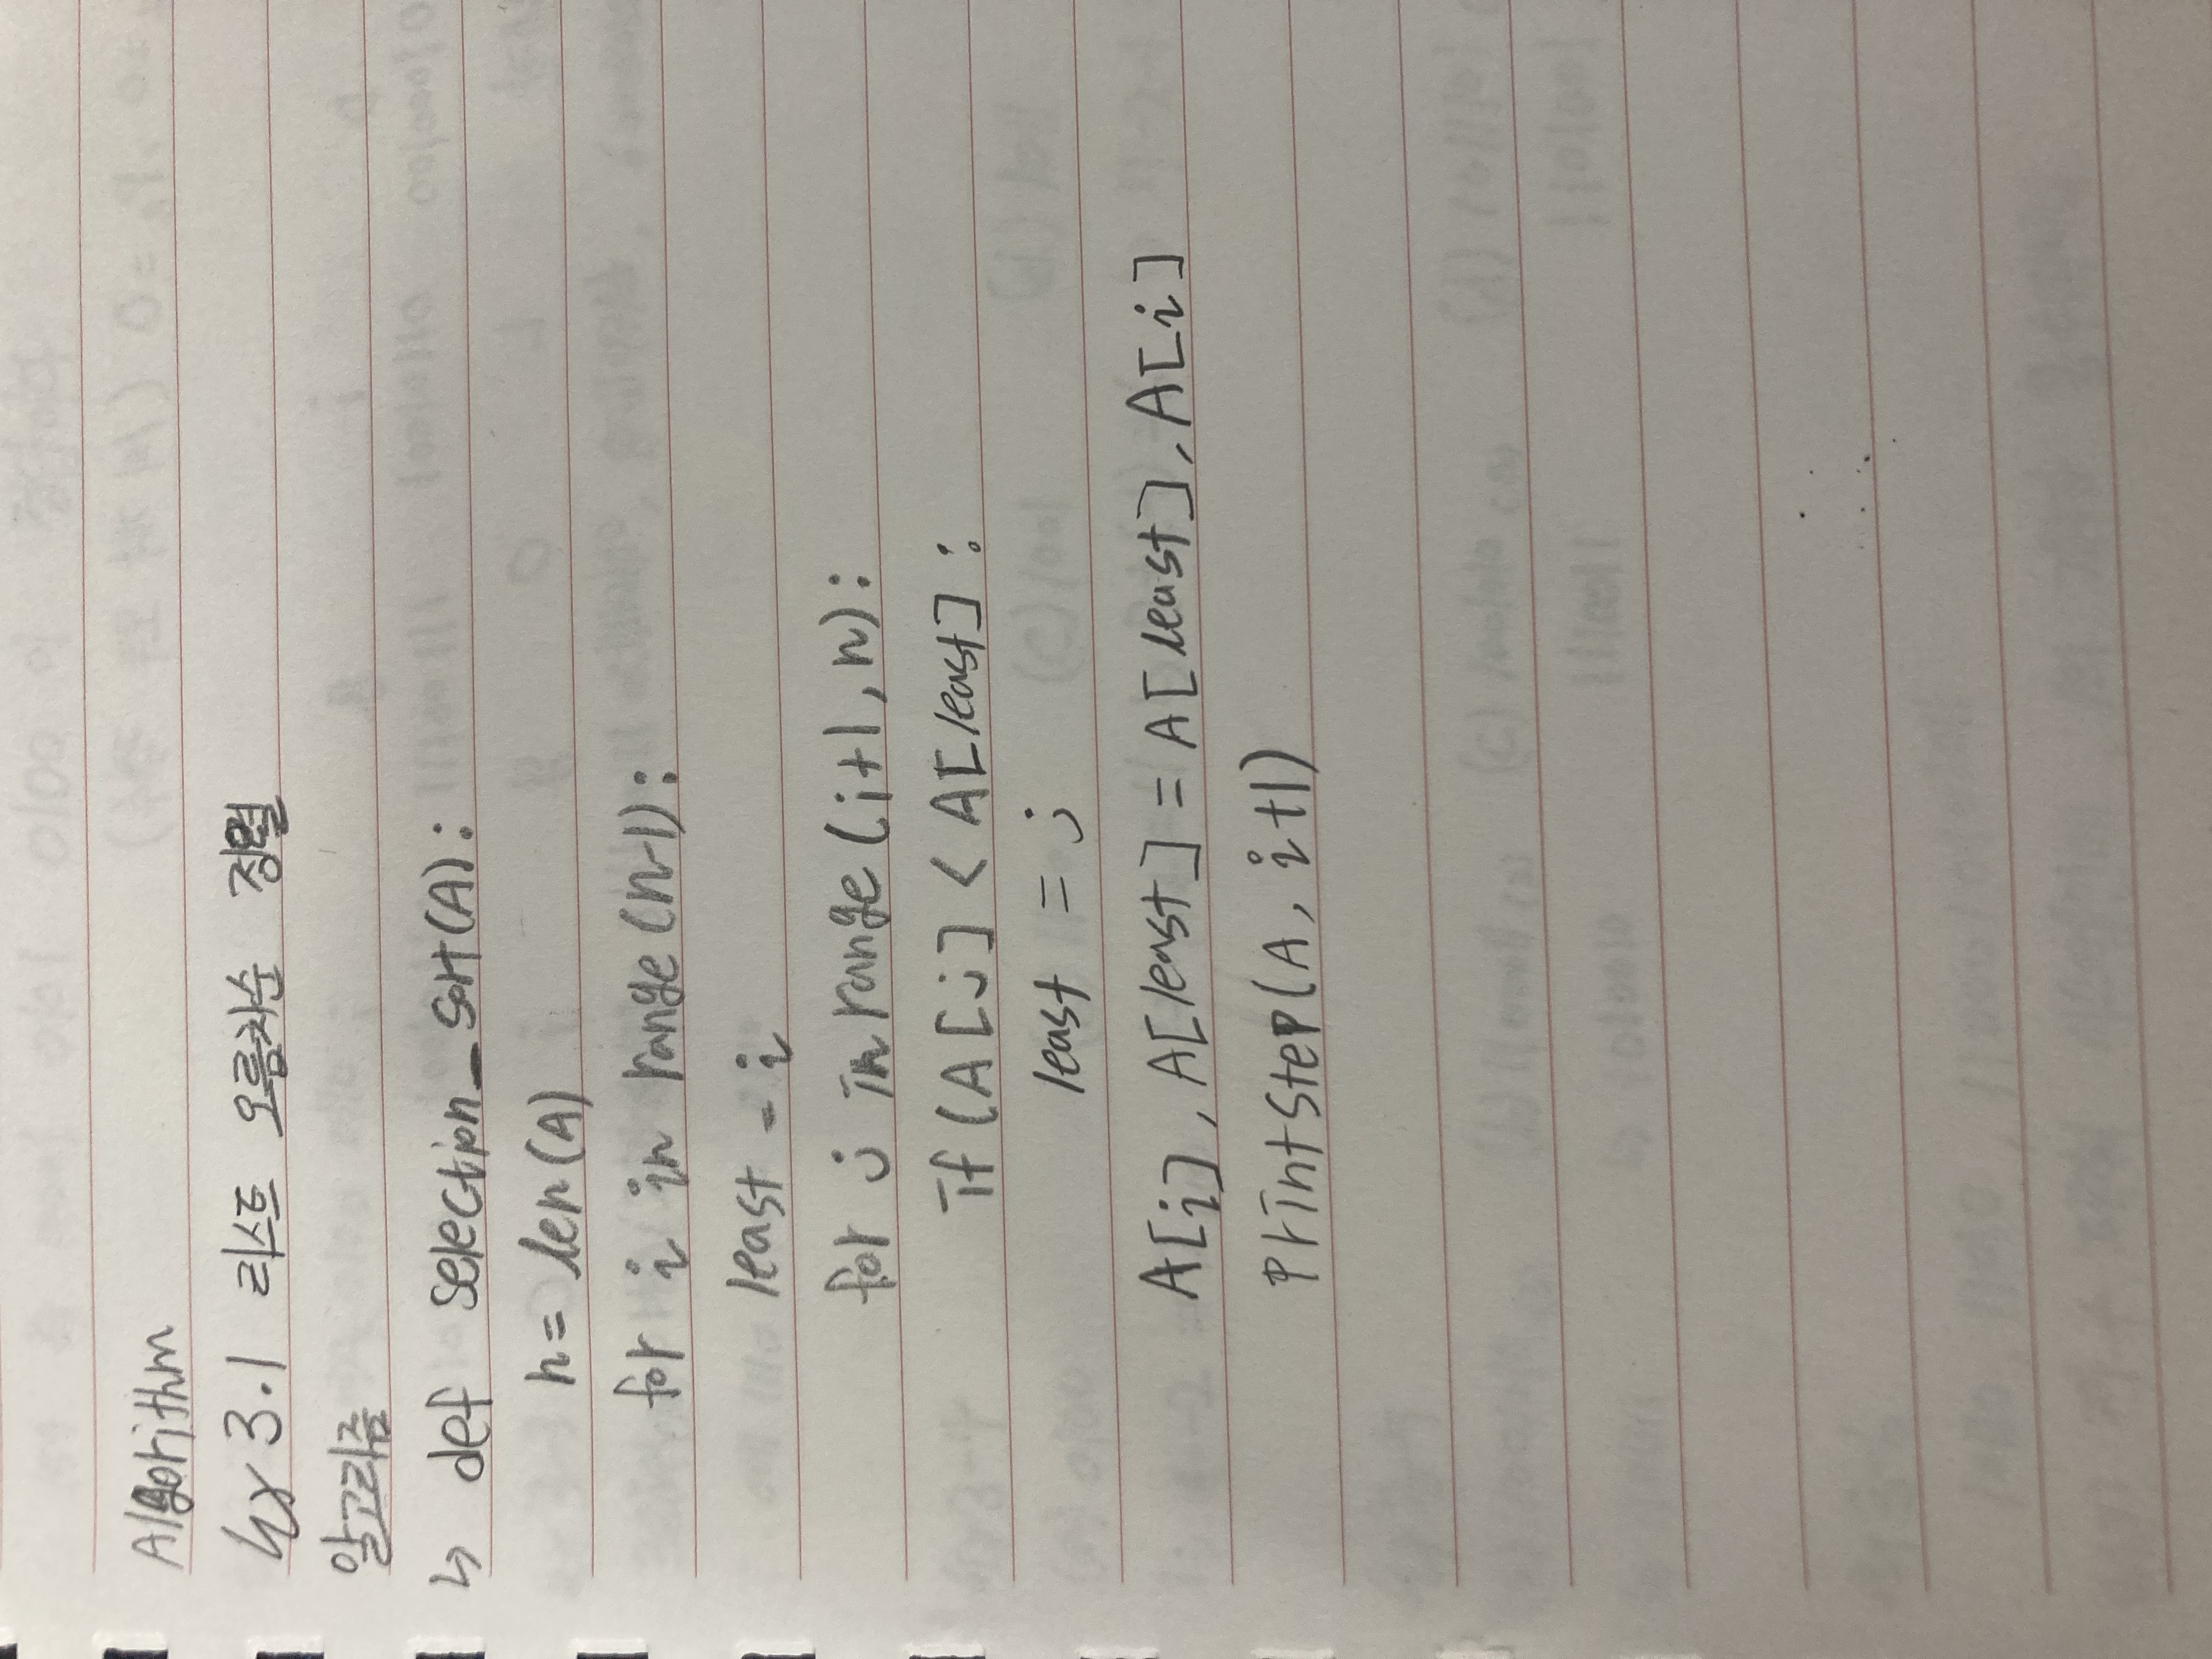 Algorithm
Ex 3.1 리스트 오름차순 정렬
알고리즘
↳ def selection_sort(A):
n = len(A)
for i in range(n-1):
least = i
for j in range(i+1, n):
if (A[j] < A[least]:
least = j
A[i], A[least] = A[least], A[i]
printstep(A, i+1)